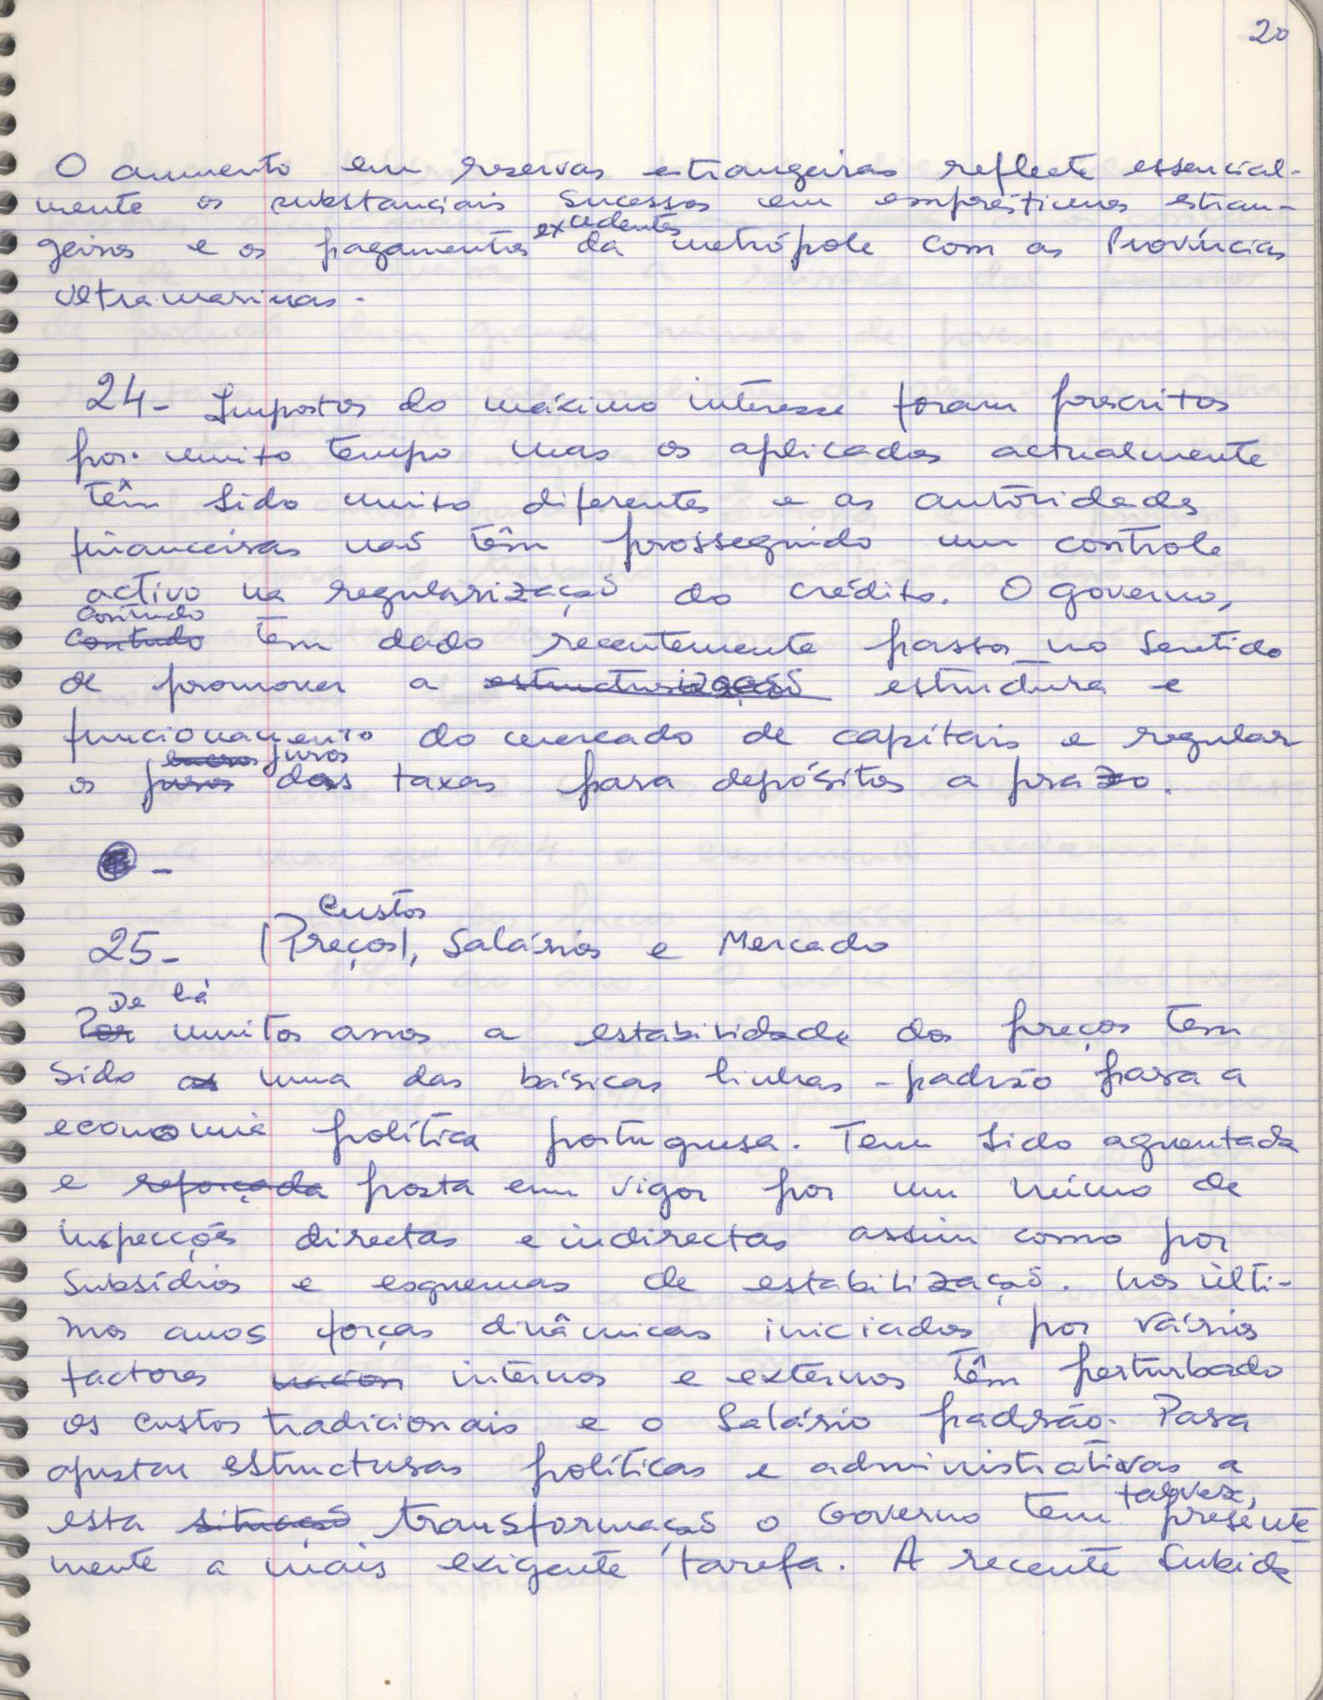 20
O aumento em reservas estrangeiras reflecte essencial-
mente os substanciais sucessos em empréstimos estran-
excedentes
geiros e os pagamentos da metrópole com as Províncias
Ultramarinas.
24- Impostos do máximo interesse foram prescritos
por muito tempo mas os aplicados actualmente
têm sido muito diferentes e as autoridades
financeiras não têm prosseguido um controle
activo na regularização do crédito. O governo,
contudo
contudo tem dado recentemente passos no sentido
de promover a estructurização estrutura e
funcionamento do mercado de capitais e regular
juros
os juros das taxas para depósitos a prazo.
-
Custos
25- (Preços), Salários e Mercado
De há
Por muitos anos a estabilidade dos preços tem
sido as uma das básicas linhas-padrão para a
economia política portuguesa. Tem sido aguentada
e reforçada posta em vigor por um número de
inspecções directas e indirectas assim como por
subsídios e esquemas de estabilização. Nos últi-
mos anos forças dinâmicas iniciadas por vários
factores internos e externos têm perturbado
os custos tradicionais e o salário padrão. Para
ajustar estructuras políticas e administrativas a
talvez,
esta situação transformação o Governo tem presente
mente a mais exigente tarefa. A recente subida